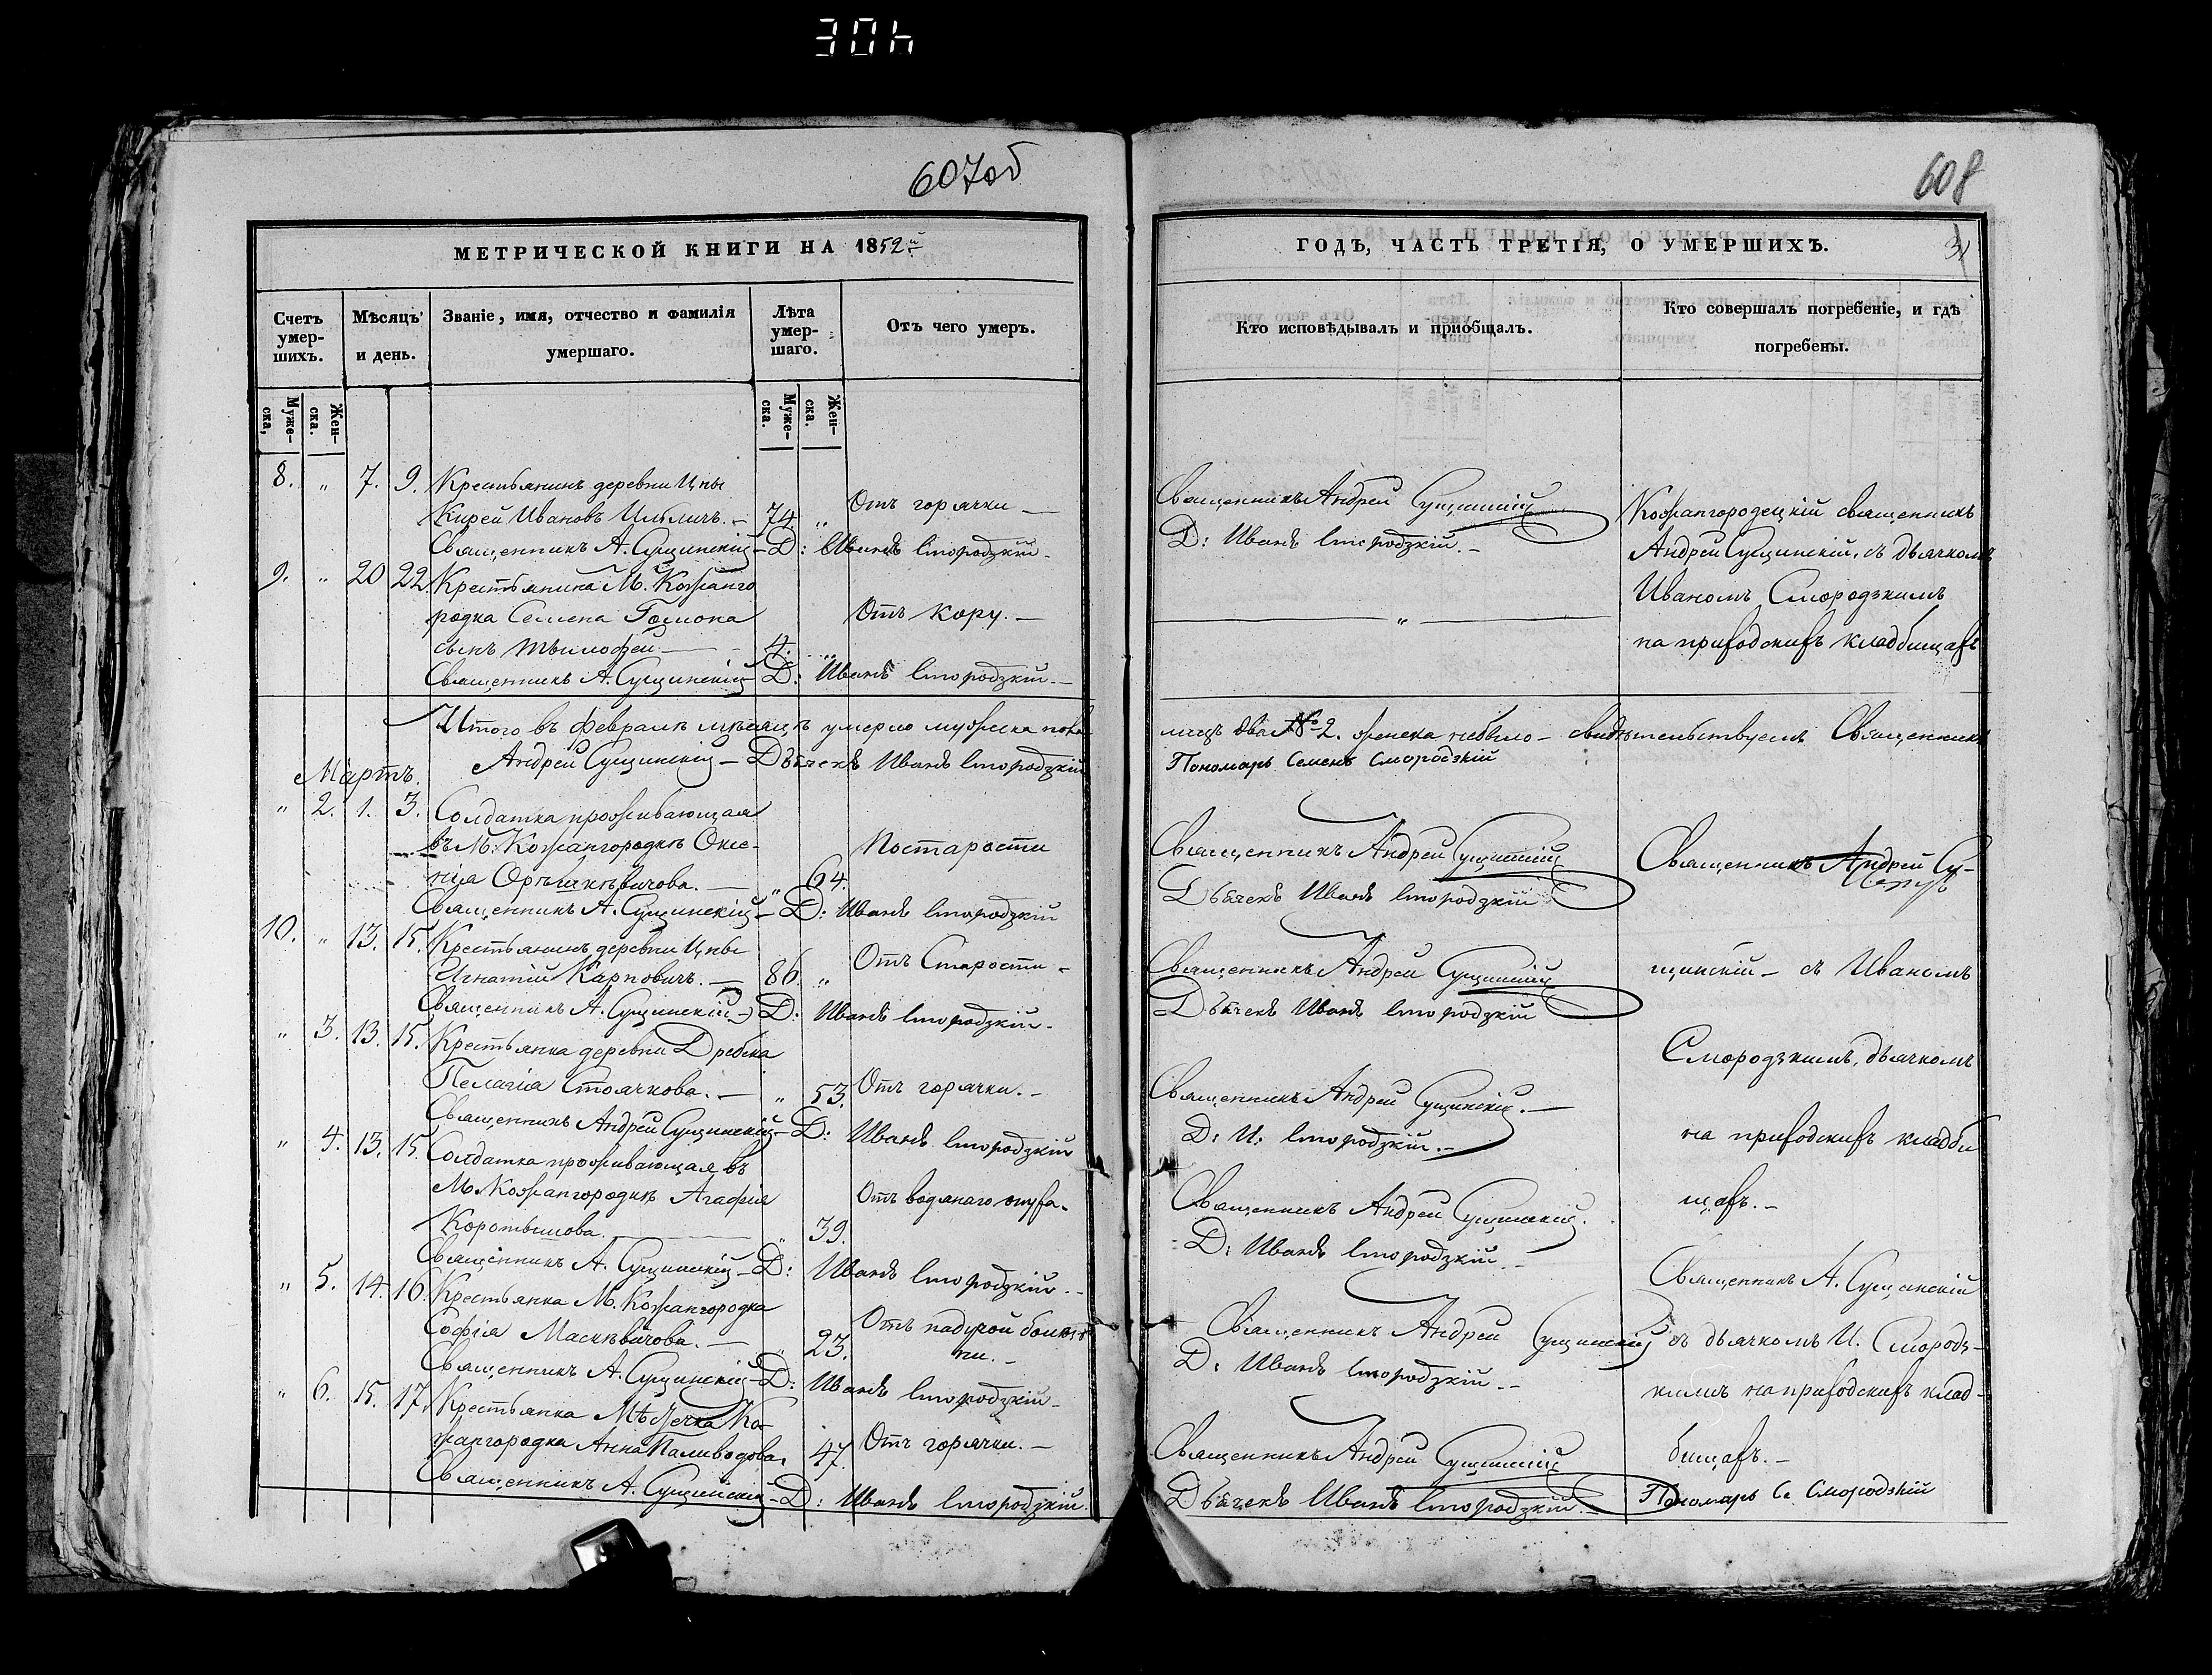 30h
607об
МЕТРИЧЕСКОЙ КНИГИ НА 1852й
Счетъ умер-шихъ.
Мѣсяцъ и день.
Званіе, имя, отчество и фамилія умершаго.
Лѣта умер-шаго.
Отъ чего умеръ.
Муже-ска,
Жен-ска.
Муже-ска.
Жен-ска.
8. „ 7. 9. Крестьянинъ деревни Цны
Кирей Ивановъ 74. „ Отъ горячки —
Священникъ А. Сущинскій — Д: Иванъ Смородзкій. -
9. „ 20 22. Крестьянина М. Кожанго
родка Семена Гомона Отъ кору. —
сынъ Тымофей — 4. „
Священникъ А. Сущинскій Д: Иванъ Смородзкій. —
Итого въ февралѣ мѣсяцѣ умерло мужеска пола
Андрей Сущинскій — Дьячекъ Иванъ Смородзкій
Мартъ.
„ 2. 1. 3. Солдатка проживающая
въ М: Кожангородкѣ Окси- Постарости
нія Орѣшкѣвичова. — „ 64.
Священникъ А. Сущинскій — Д: Иванъ Смородзкій
10. „ 13. 15. Крестьянинъ деревни Цны
Игнатій Карповичъ. — 86 „ Отъ Старости -
Священникъ А. Сущинскій Д: Иванъ Смородзкій. -
„ 3. 13. 15. Крестьянка деревни Дребска
Пелагіа Стоячкова. — „ 53. Отъ горячки. -
Священникъ Андрей Сущинскій — Д: Иванъ Смородзкій
„ 4. 13. 15. Солдатка проживающая въ
М. Кожангородкѣ Агафія Отъ водянаго опуха.
Коротышова. „ 39.
Священникъ А. Сущинскій — Д: Иванъ Смородзкій. -
„ 5. 14. 16. Крестьянка М. Кожангородка
Софія Маскѣвичова. — „ 23. Отъ падучой болѣз
ни. -
Священникъ А. Сущинскій — Д: Иванъ Смородзкій -
„ 6. 15. 17. Крестьянка Мѣстечка Ко-
жангородка Анна Паливодова. 47. Отъ горячки. —
Священникъ А. Сущинскій — Д: Иванъ Смородзкій.
608
ГОДЪ, ЧАСТЬ ТРЕТІЯ, О УМЕРШИХЪ.
31
Кто исповѣдывалъ и пріобщалъ.
Кто совершалъ погребеніе, и гдѣ погребены.
Священникъ Андрей Сущинскій
Д: Иванъ Смородзкій. -
Кожангородецкій священникъ
Андрей Сущинскій, съ дьячкомъ
Иваномъ Смородзкимъ
на приходскихъ кладбищахъ
— „ —
лицъ два № 2. женска небыло — свидѣтельствуемъ Священникъ
Пономарь Семенъ Смородзкій
Священникъ Андрей Сущинскій
Дьячекъ Иванъ Смородзкій
Священникъ Андрей Су-
Священникъ Андрей Сущинскій
Дьячекъ Иванъ Смородзкій
щинскій — съ Иваномъ
Смородзкимъ, дьячкомъ
Священникъ Андрей Сущинскій. —
Д: И: Смородзкій. -
на приходскихъ кладби
щахъ. -
Священникъ Андрей Сущинскій.
Д: Иванъ Смородзкій. -
Священникъ А. Сущинскій
Священникъ Андрей Сущинскій
Д: Иванъ Смородзкій. -
съ дьячкомъ И. Смородз-
кимъ на приходскихъ клад-
бищахъ. -
Священникъ Андрей Сущинскій
Дьячекъ Иванъ Смородзкій. -
Пономарь Се Смородзкій